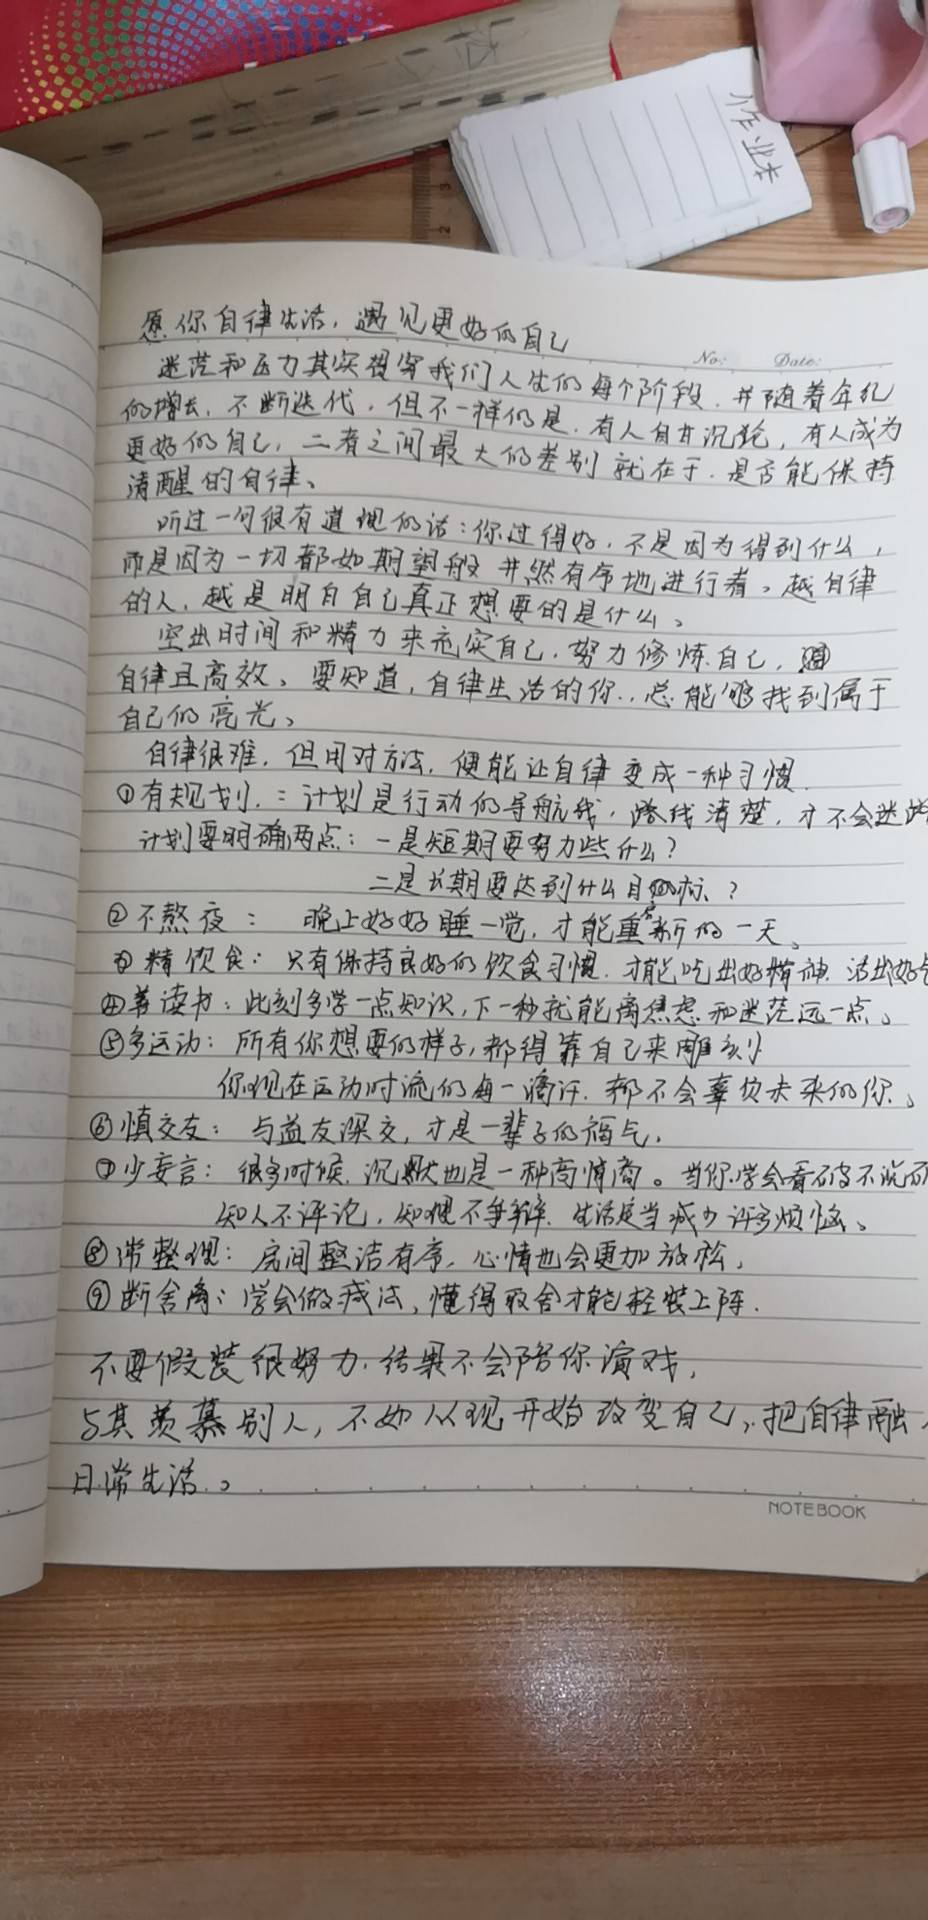 作业本
愿你自律生活，遇见更好的自己
No: Date:
迷茫和压力其实贯穿我们人生的每个阶段．并随着年纪
的增长．不断迭代．但不一样的是．有人自甘沉沦，有人成为
更好的自己，二者之间最大的差别就在于．是否能保持
清醒的自律、
听过一句很有道理的话：你过得好．不是因为得到什么，
而是因为一切都如期望般井然有序地进行着。越自律
的人．越是明白自己真正想要的是什么、
空出时间和精力来充实自己．努力修炼自己，
自律且高效、要知道，自律生活的你．，总能够找到属于
自己的亮光、
自律很难．但用对方法．便能让自律变成一种习惯．
①有规划．：计划是行动的导航线，路线清楚，才不会迷路
计划要明确两点：一是短期要努力些什么？
二是长期要达到什么目标．？
②不熬夜： 晚上好好睡一觉，才能重新的一天、
③精饮食：只有保持良好的饮食习惯．才能吃出好精神．活出好气
④善读书：此刻多学一点知识，下一秒就能离焦虑和迷茫远一点、
⑤多运动：所有你想要的样子，都得靠自己来雕刻
你现在运动时流的每一滴汗．都不会辜负未来的你、
⑥慎交友：与益友深交，才是一辈子的福气．
⑦少妄言：很多时候．沉默也是一种高情商。当你学会看破不说破
知人不评论，知理不争辩．生活定当减少许多烦恼、
⑧常整理：房间整洁有序，心情也会更加放松，
⑨断舍离：学会做减法，懂得取舍才能轻装上阵．
不要假装很努力．结果不会陪你演戏，
与其羡慕别人，不如从现开始改变自己，把自律融入
日常生活．。
NOTEBOOK